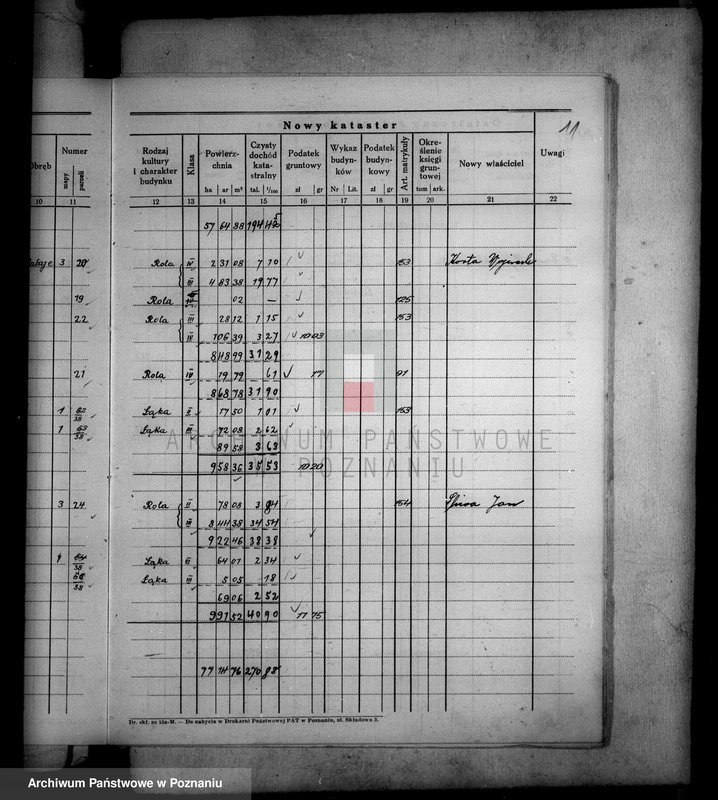 Nowy kataster
11
Obręb
Numer
mapy
parceli
Rodzaj kultury i charakter budynku
Klasa
Powierzchnia
ha ar m²
Czysty dochód katastralny
tal. ¹/₁₀₀
Podatek gruntowy
zł gr
Wykaz budynków
Nr Lit.
Podatek budynkowy
zł gr
Art. matrykuły
Określenie księgi gruntowej
tom ark.
Nowy właściciel
Uwagi
10 11 12 13 14 15 16 17 18 19 20 21 22
57 64 88 194 43
3 20 Rola IV 2 31 08 7 70 153 Kosta
III 4 83 38 19 77
19 Rola 02 — 125
22 Rola III 28 12 1 15 153
IV 1 06 39 3 27 10 03
8 48 99 31 29
21 Rola IV 19 79 61 17 91
8 68 78 31 90
1 62/38 Łąka II 17 50 1 01 153
1 63/38 Łąka III 72 08 2 62
89 58 3 63
9 58 36 35 53 10 20
3 24 Rola II 78 08 3 84 154 Jan
III 8 44 38 34 54
9 22 46 38 38
1 64/38 Łąka II 64 01 2 34
65/38 Łąka III 5 05 18
69 06 2 52
9 91 52 40 90 11 75
77 14 76 270 88
Dr. skł. nr 15a-M. — Do nabycia w Drukarni Państwowej PAT w Poznaniu, ul. Składowa 3.
ARCHIWUM PAŃSTWOWE
W POZNANIU
Archiwum Państwowe w Poznaniu